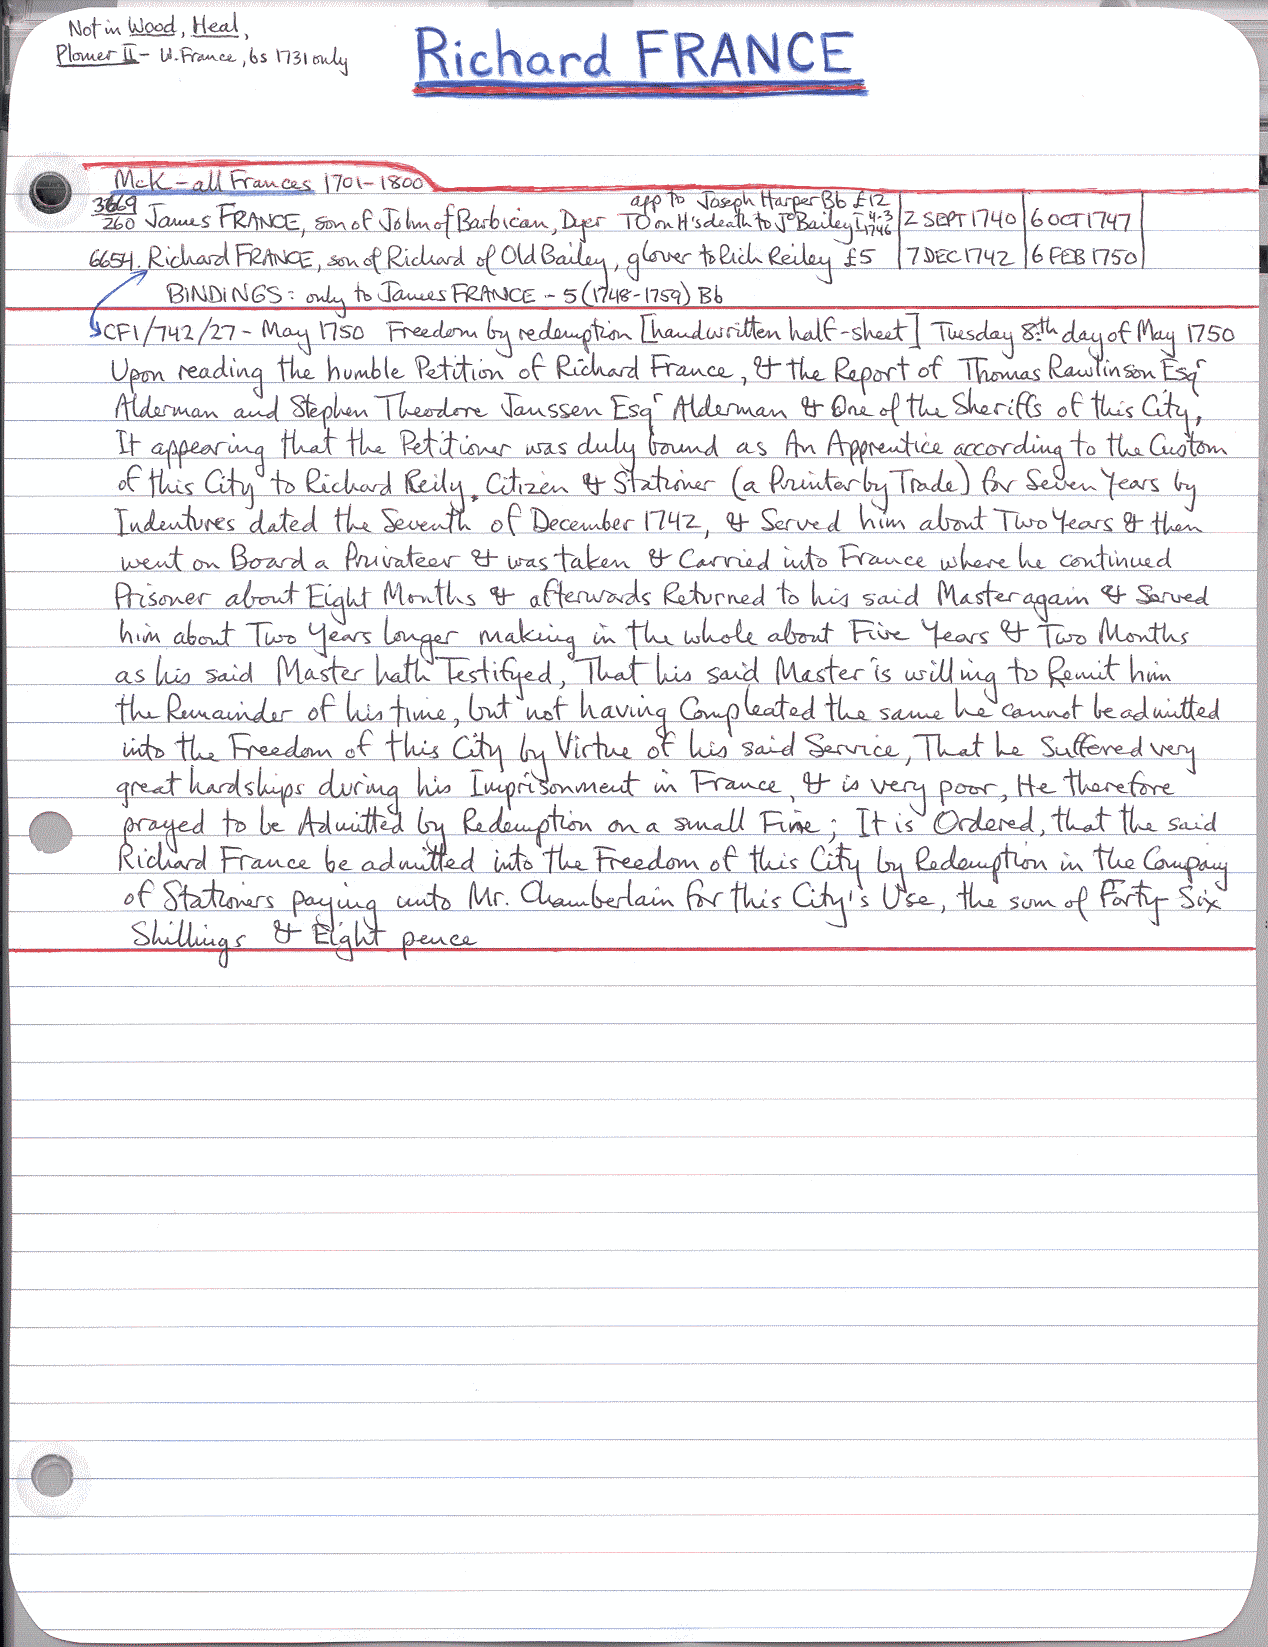 Not in Wood, Heal,
Plomer II - W. France, bs 1731 only
Richard FRANCE
McK - all Frances 1701-1800
3669
260 James FRANCE, son of John of Barbican, Dyer app to Joseph Harper Bb £12 TO on H's death to Jo Bailey I 4.3 1746 2 SEPT 1740 6 OCT 1747
6654. Richard FRANCE, son of Richard of Old Bailey, glover to Rich Reiley £5 7 DEC 1742 6 FEB 1750
BINDINGS: only to James FRANCE - 5 (1748-1759) Bb
CF1/742/27 - May 1750 Freedom by redemption [handwritten half-sheet] Tuesday 8th day of May 1750
Upon reading the humble Petition of Richard France, & the Report of Thomas Rawlinson Esqr
Alderman and Stephen Theodore Janssen Esqr Alderman & One of the Sheriffs of this City,
It appearing that the Petitioner was duly bound as An Apprentice according to the Custom
of this City to Richard Reily, Citizen & Stationer (a Printer by Trade) for Seven Years by
Indentures dated the Seventh of December 1742, & Served him about Two Years & then
went on Board a Privateer & was taken & Carried into France where he continued
Prisoner about Eight Months & afterwards Returned to his said Master again & Served
him about Two Years longer making in the whole about Five Years & Two Months
as his said Master hath Testifyed, That his said Master is willing to Remit him
the Remainder of his time, but not having Compleated the same he cannot be admitted
into the Freedom of this City by Virtue of his said Service, That he Suffered very
great hardships during his Imprisonment in France, & is very poor, He therefore
prayed to be Admitted by Redemption on a small Fine; It is Ordered, that the said
Richard France be admitted into the Freedom of this City by Redemption in the Company
of Stationers paying unto Mr. Chamberlain for this City's Use, the sum of Forty Six
Shillings & Eight pence